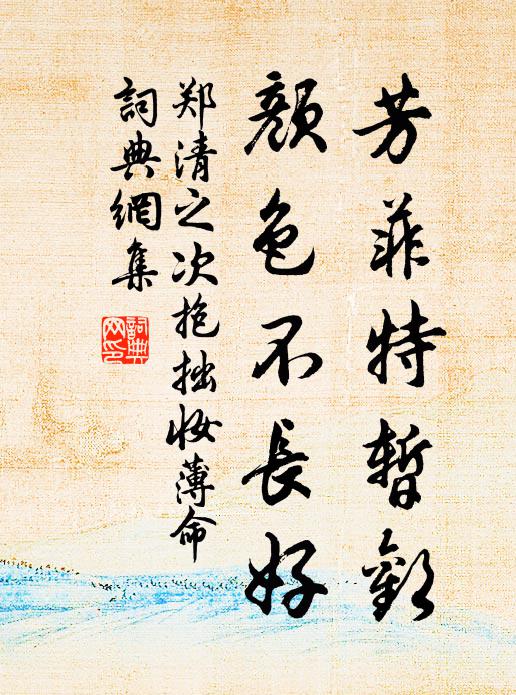 芳菲特暫歡
顏色不長好
郑清之次抱拙妆薄命
詞典網集
詞典网印